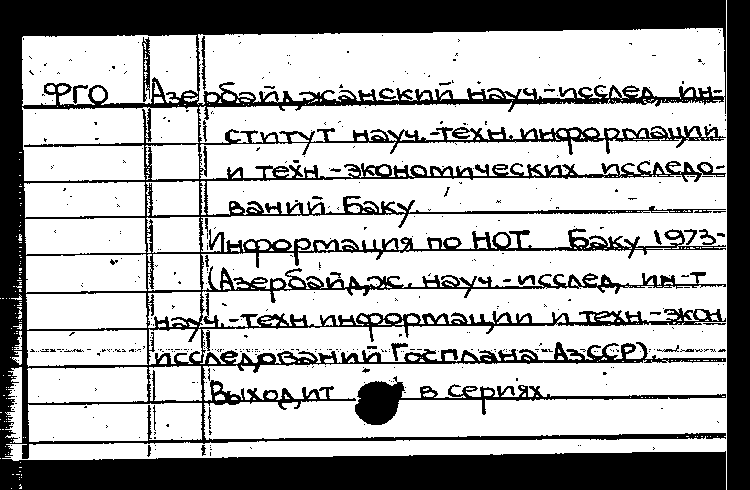 ФГО Азербайджанский науч.-исслед. ин-
ститут науч.-техн. информации
и техн.-экономических исследо-
ваний. Баку.
Информация по НОТ. Баку, 1973-
(Азербайдж. науч.-исслед. ин-т
науч.-техн. информации и техн.-экон.
исследований Госплана АзССР).
Выходит в сериях.